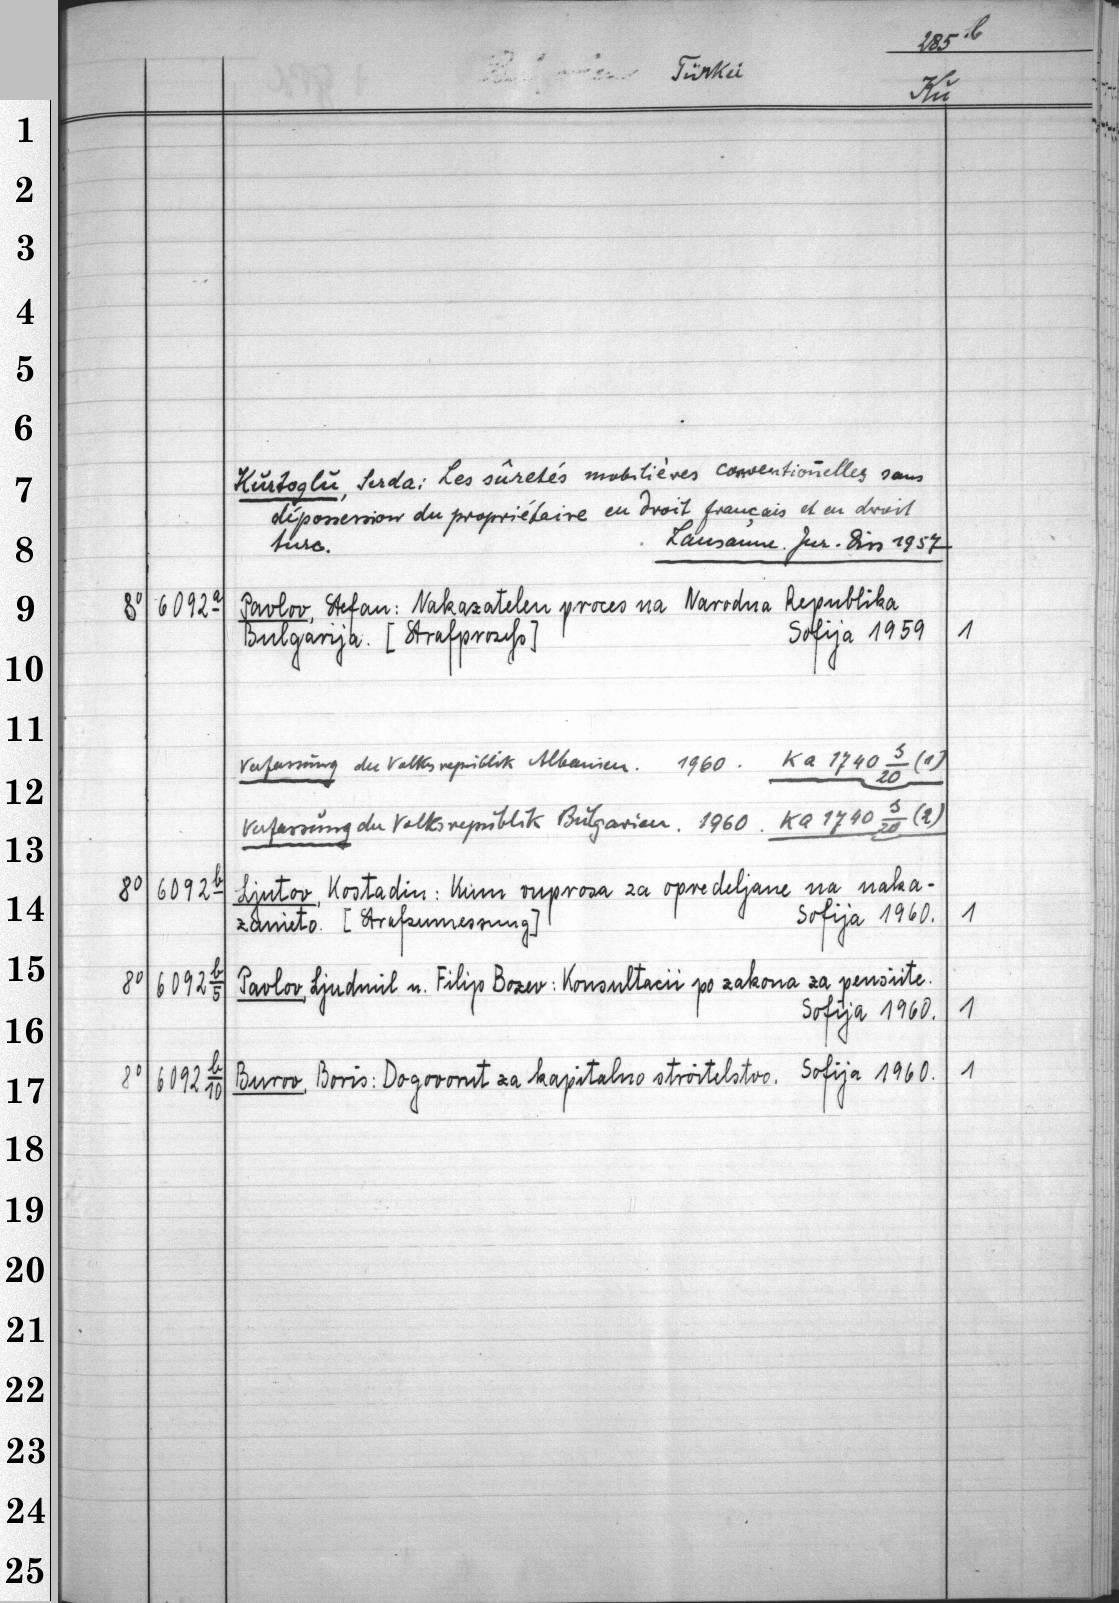 285 b
Türkei
Kü
1
2
3
4
5
6
7
Kŭrtoglŭ, Serda: Les sûretés mobilières conventionelles sans
dépossession du propriétaire en droit français et en droit
8
turc. Lausanne. Jur. Diss 1957
9
8° 6092 a Pavlov, Stefan: Nakazatelen proces na Narodna Republika
Bulgarija. [Strafprozeß] Sofija 1959 1
10
11
Verfassung der Volksrepublik Albanien. 1960. Ka 1740 5/20 (1)
12
Verfassung der Volksrepublik Bulgarien. 1960. Ka 1740 5/20 (2)
13
8° 6092 b Ljutov, Kostadin: Kum vuprosa za opredeljane na naka-
14
zanieto. [Strafzumessung] Sofija 1960. 1
15
8° 6092 b/5 Pavlov, Ljudmil u. Filip Bozev: Konsultacii po zakona za pensiite.
Sofija 1960. 1
16
8° 6092 b/10 Burov, Boris: Dogovorut za kapitalno stroitelstvo. Sofija 1960. 1
17
18
19
20
21
22
23
24
25